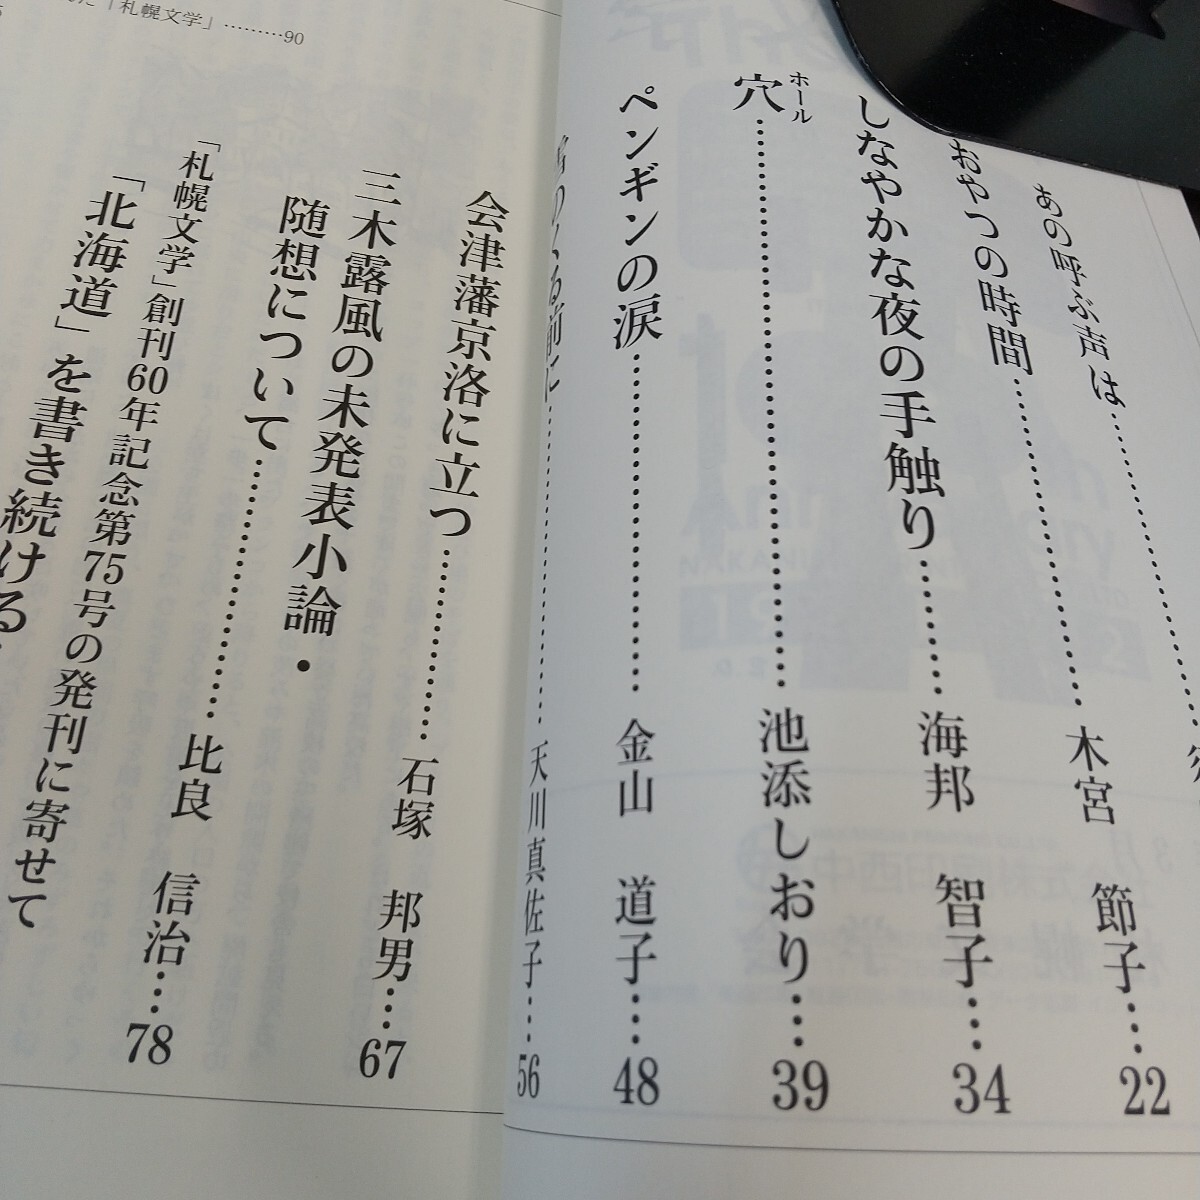 あの呼ぶ声は……………………
おやつの時間……………………木宮　節子…22
しなやかな夜の手触り…………海邦　智子…34
穴……………………………………池添しおり…39
ホール
ペンギンの涙……………………金山　道子…48
のくる前に………………………天川真佐子…56
会津藩京洛に立つ………………石塚　邦男…67
三木露風の未発表小論・
随想について……………………比良　信治…78
「札幌文学」創刊60年記念第75号の発刊に寄せて
「北海道」を書き続ける
「札幌文学」………90